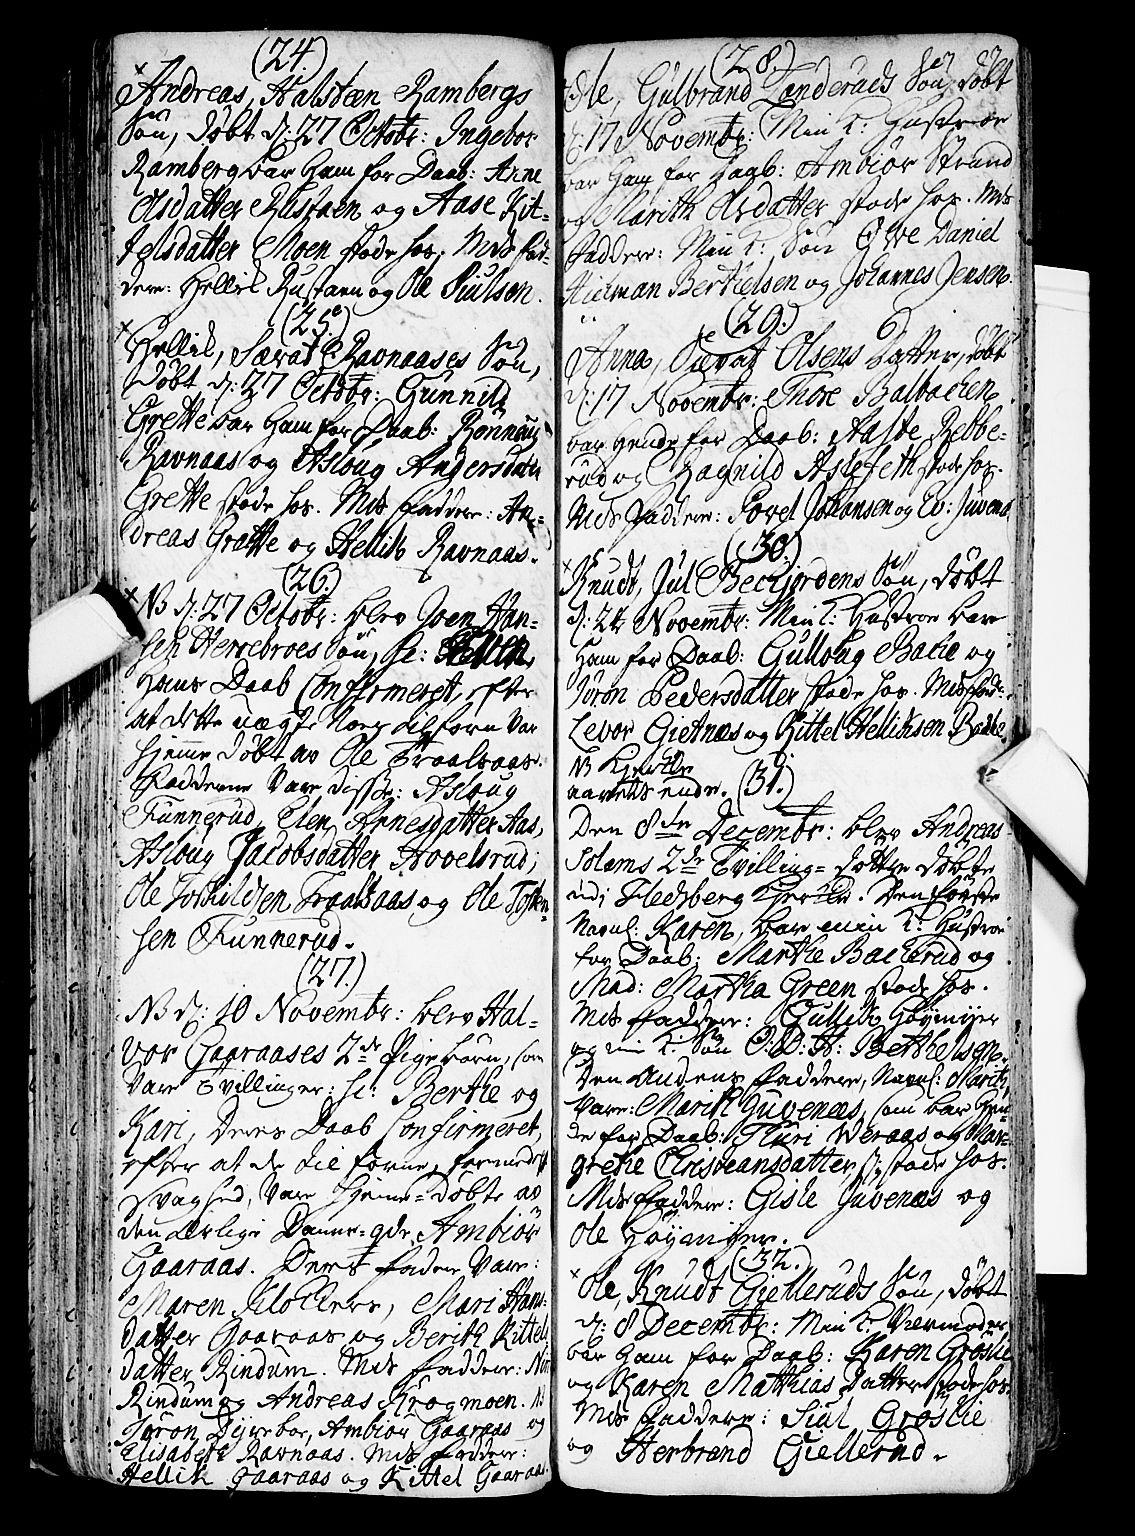 (24.)
Andreas, Halsteen Rambergs
Søn, døbt d: 27 Octobr: Ingebor
Ramberg bar ham for Daab: Anne
Olsdatter Rustaen og Aase Kit-
telsdatter Moen stode hos. Mds fad-
dere: Hellik Rustaen og Ole Siulsen.
(25.)
Hellik, Ravnaases Søn,
døbt d: 27 Octobr: Gunnild
Grette bar ham for Daab: Rønnaug
Ravnaas og Asloug Andersdatter
Grette stode hos. Mds faddere: An-
dreas Grette og Hellik Ravnaas.
(26.)
NB d: 27 Octobr: blev Joen Han-
sen Herrebroes Søn,
hans Daab Confirmeret, efter
at dette Noer tilforn var
hjeme døbt av Ole Traalsaas.
Fadderne vare disse: Aslaug
Funnerud, Elen Arnesdatter Aas,
Asloug Jacobsdatter Hovelsrud,
Ole Torkildsen Traalsaas og Ole Tosten-
sen Funnerud.
(27.)
NB d: 10 Novembr: blev Hal-
vor Gaaraases 2de Pigebørn, som
vare Tvillinger: sc: Berthe og
Kari, deres Daab Confirmeret,
efter at de til forne, formedelst
Svaghed, vare hjeme-døbte av
den ærlige Danne-qde Ambiør
Gaaraas. Ders faddere vare:
Maren Klokkers, Mari Hans-
datter Gaaraas og Berith Kittels
datter Rindum. Mds faddere:
Rindum og Andreas Krogmoen.
Jøron Dyrebor, Ambiør Gaaraas og
Elisabeth Ravnaas. Mds faddere:
Hellik Gaaraas og Kittel Gaaraas.
(28.)
Ole, Gulbrand Landeruds Søn, døbt
d: 17 Novembr: Min K: Hustroe
bar ham for Daab: Ambiør Strand
og Marith Olsdatter stode hos. Mds
faddere: Min K: Søn Ove Daniel
Hielman Berthelsen og Johannes Jensen.
(29.)
Anna, Olsens Datter, døbt
d: 17 Novembr: Thore Balbachen
bar hende for Daab: Aaste Rebbe-
rud og Ragnild Aslefeth stode hos.
Mds faddere: Povel Johansen og Ev: Juvenæs
(30.)
Knudt, Jul Beckjordens Søn, døbt
d: 24 Novembr: Min K: Hustroe bar
ham for Daab: Gulloug Bache og
Jøron Pedersdatter stode hos. Mds fadd:
Levor Gietnæs og Kittel Hellichsen Bache.
NB Kirke
aarets ende. (31.)
Den 8de Decembr: blev Andreas
Solems 2de Tvilling-døttre døbte
udi Flesberg Kirke. Den første
Navnl: Karen, bar min K: Hustroe
for Daab: Marthe Bacherud og
Mad: Martha Green stode hos.
Mds faddere: Gullik Høymyer
og min K: Søn O: D: H: Berthelsen.
Den Andens faddere, Navnl: Marith,
vare: Marith Juvenæs, som bar hen-
de for Daab: Thuri Weraas og Mar-
grethe Christiansdatter stode hos.
Mds faddere: Gisle Juvenæs og
Ole Høymyer.
(32.)
Ole, Knudt Giellerudz Søn, døbt
d: 8 Decembr: Min K: Værmoder
bar ham for Daab: Karen Groslie
og Karen Matthias datter stode hos.
Mds faddere: Siul Groslie
og Herbrand Giellerud.